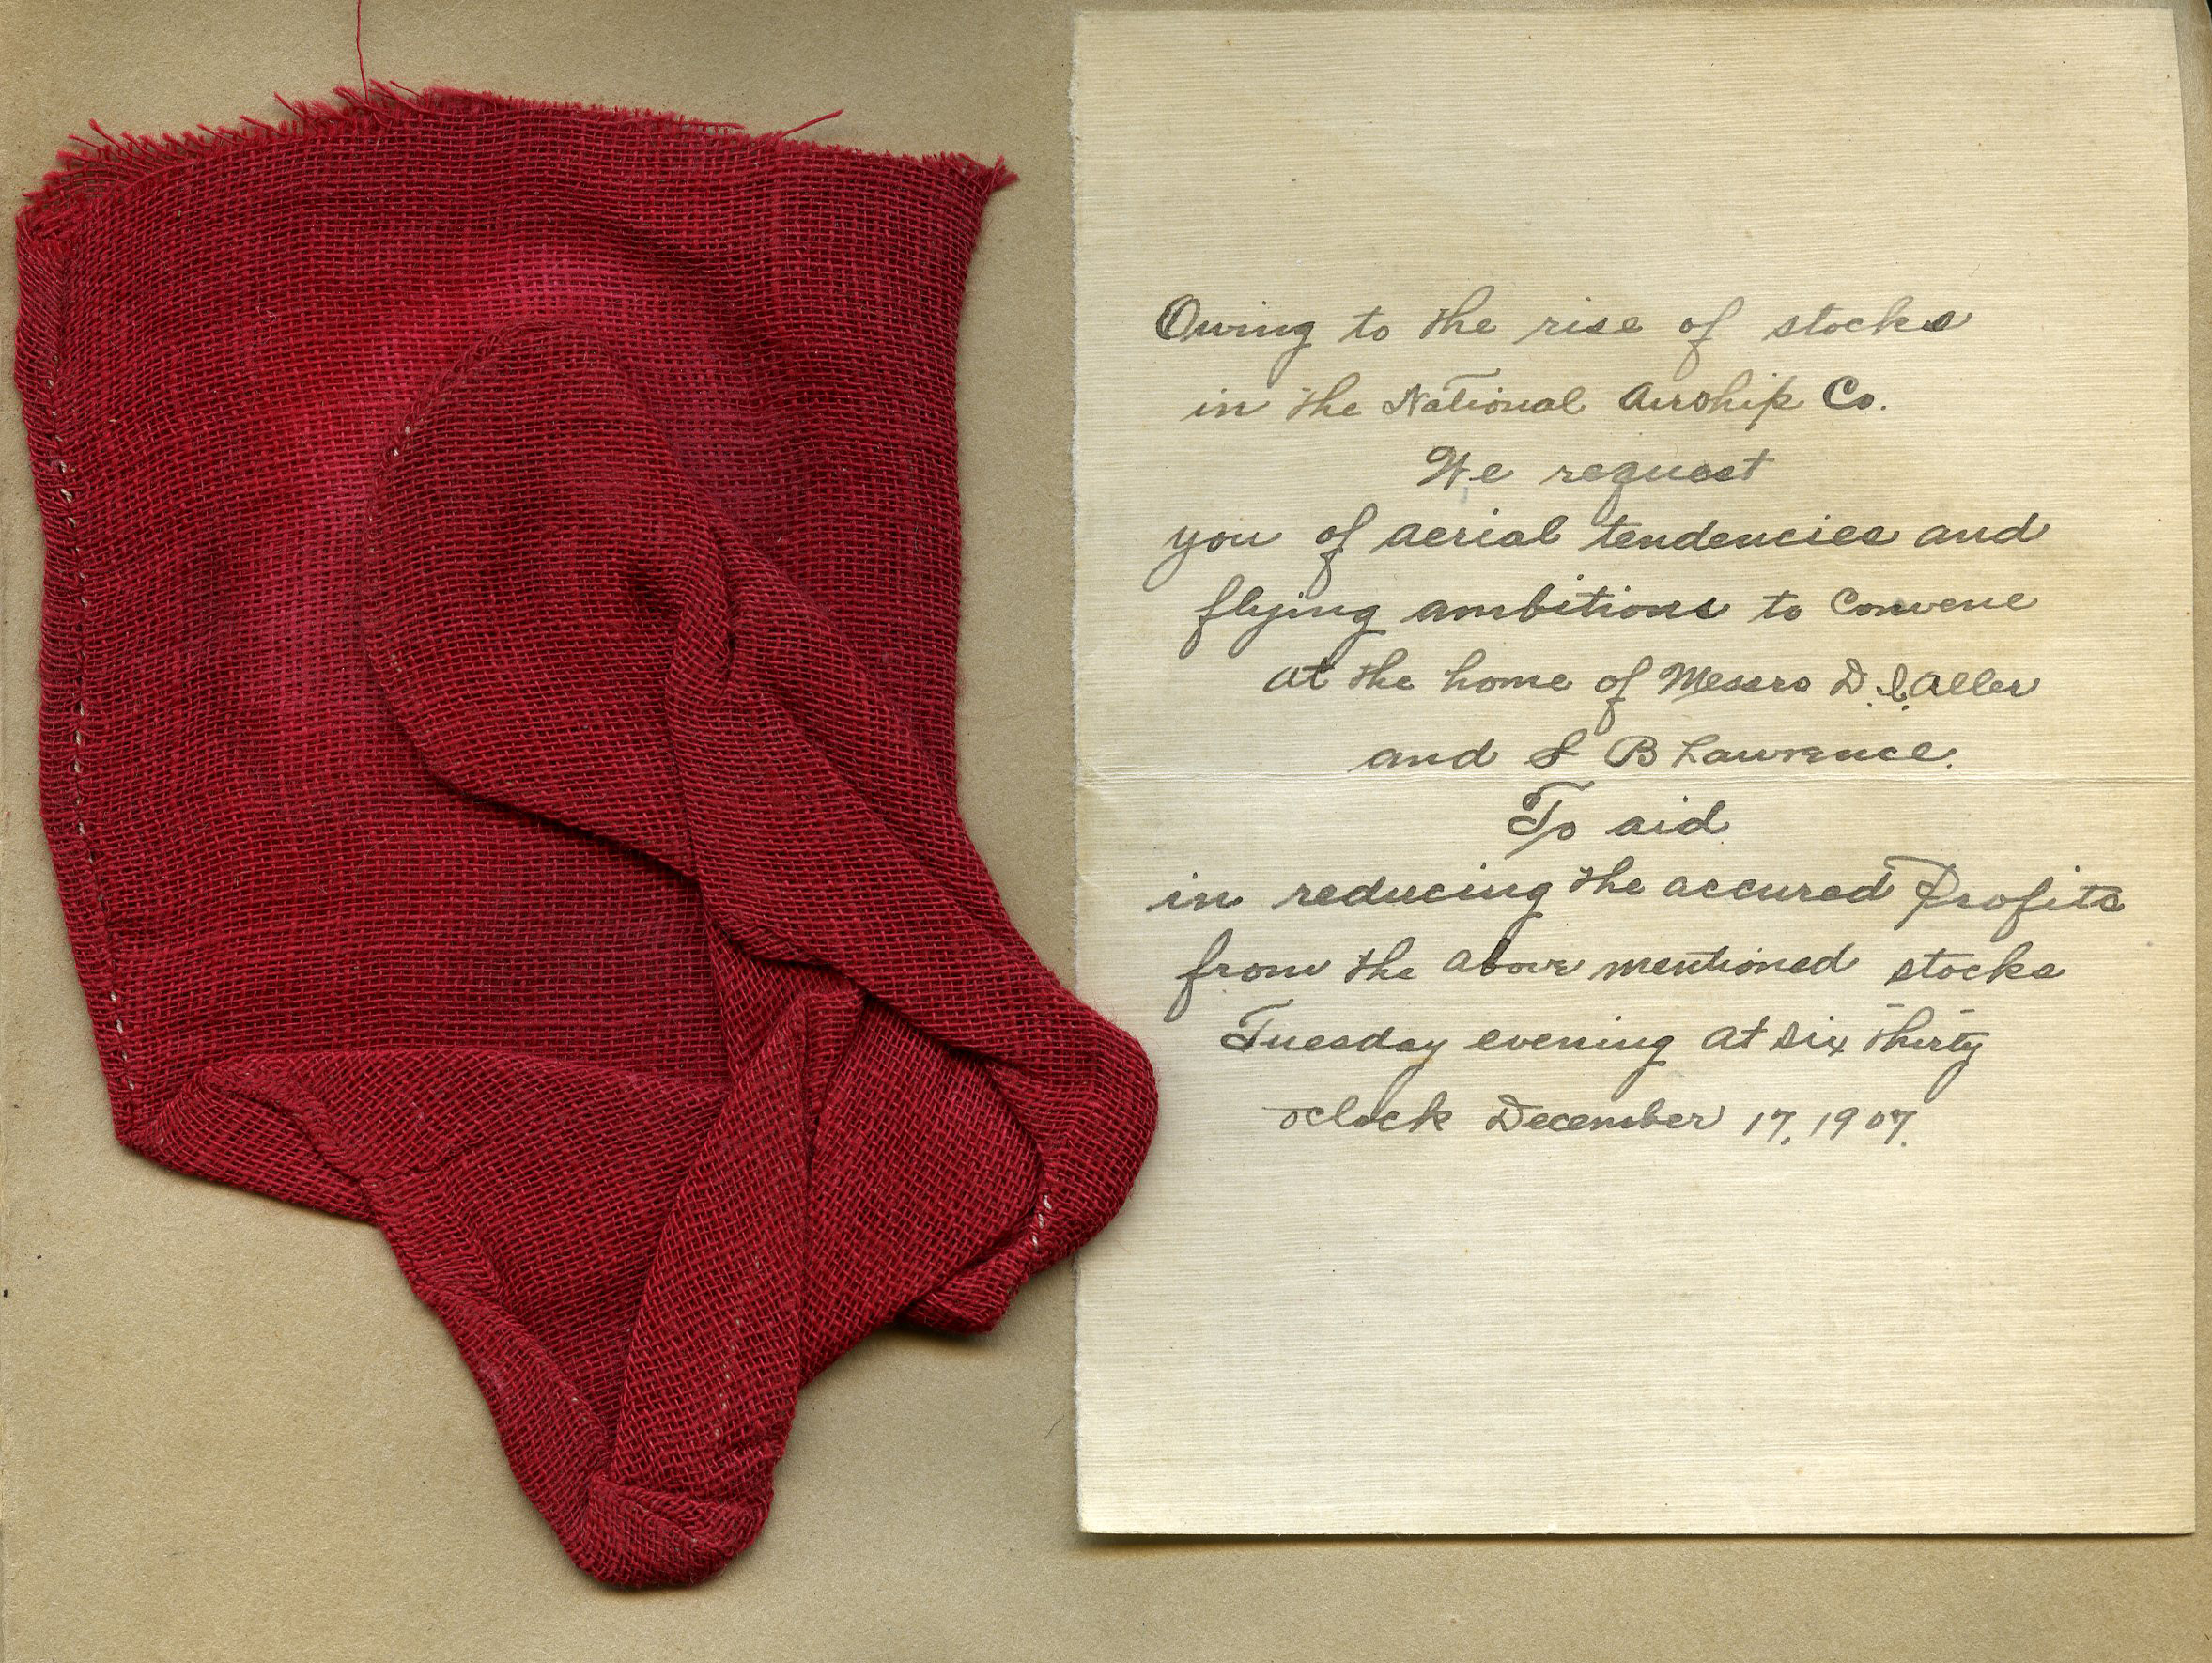 Owing to the rise of stocks
in the National Airship Co.
We request
you of aerial tendencies and
flying ambitions to convene
at the home of Messrs D. L. Aller
and S B Lawrence.
To aid
in reducing the accured Profits
from the above mentioned stocks
Tuesday evening at six thirty
oclock December 17, 1907.